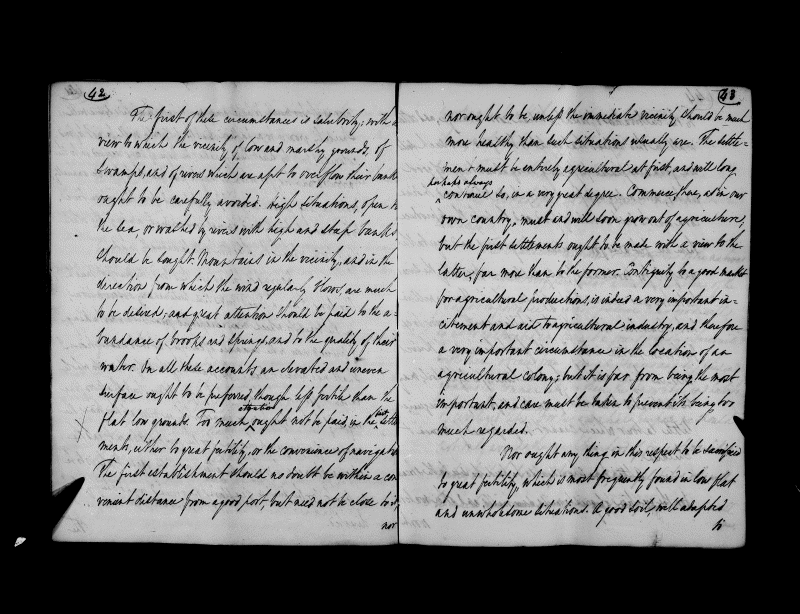 42
The first of these circumstances is salubrity; with a
view to which the vicinity of low and marshy grounds, of
swamps, and of rivers which are apt to overflow their banks
ought to be carefully avoided. High situations, open to
the sea, or washed by rivers with high and steep banks
should be sought. Mountains in the vicinity, and in the
direction from which the wind regularly blows, are much
to be desired; and great attention should be paid to the a-
bundance of brooks and springs, and to the quality of their
water. On all these accounts an elevated and uneven
surface ought to be preferred, though less fertile than the
flat low grounds. Too much attention ought not be paid, in the first settle
ments, either to great fertility, or the convenience of navigation
The first establishment should no doubt be within a con
venient distance from a good port, but need not be close to it;
nor
43
nor ought to be, unless the immediate vicinity should be much
more healthy than such situations usually are. The settle-
ment must be entirely agricultural at first, and will long,
perhaps always
continue so, in a very great degree. Commerce, there, as in our
own country, must and will soon grow out of agriculture,
but the first settlements ought to be made with a view to the
latter, far more than to the former. Contiguity to a good market
for agricultural productions, is indeed a very important in-
citement and aid to agricultural industry, and therefore
a very important circumstance in the location of an
agricultural colony; but it is far from being the most
important, and care must be taken to prevent its being too
much regarded.
Nor ought any thing in this respect to be sacrificed
to great fertility, which is most frequently found in low flat
and unwholesome situations. A good soil, well adapted
to